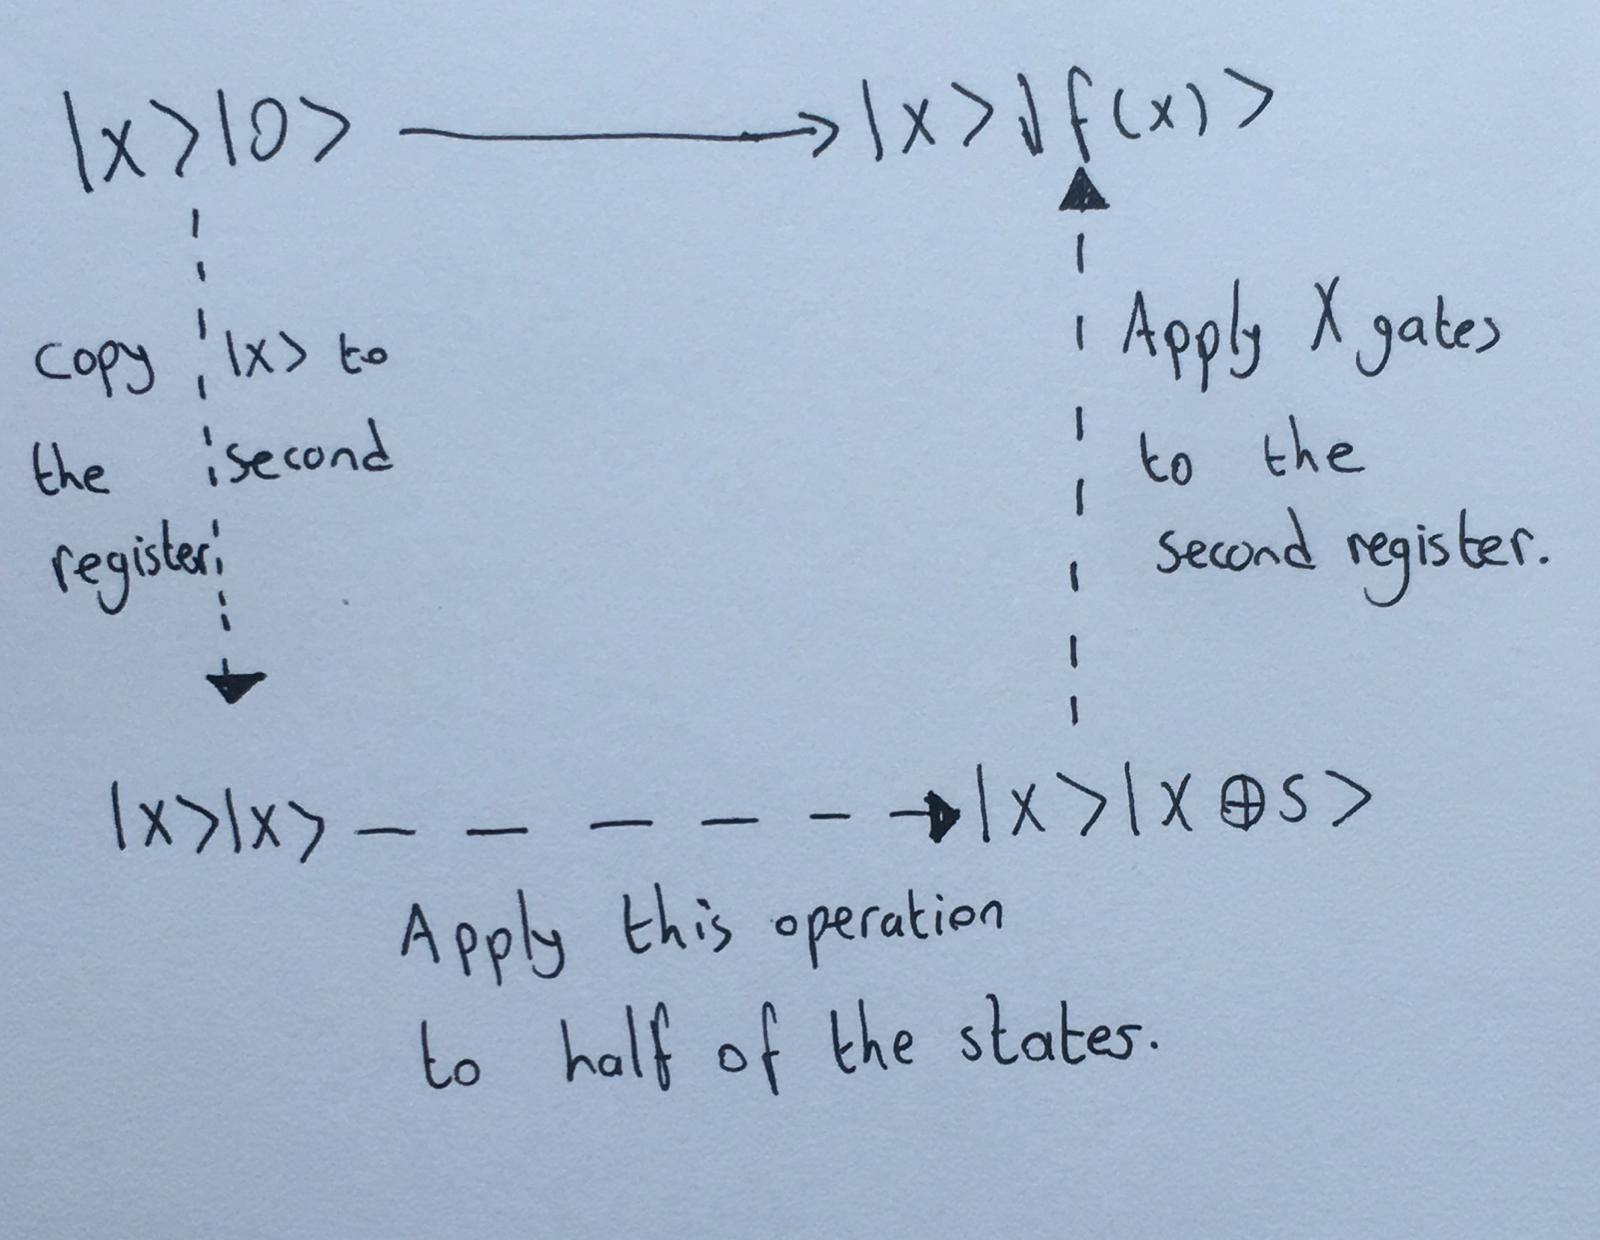 |x>|0> → |x>|f(x)>
copy |x> to
the second
register
Apply X gates
to the
second register.
|x>|x> → |x>|x⊕s>
Apply this operation
to half of the states.